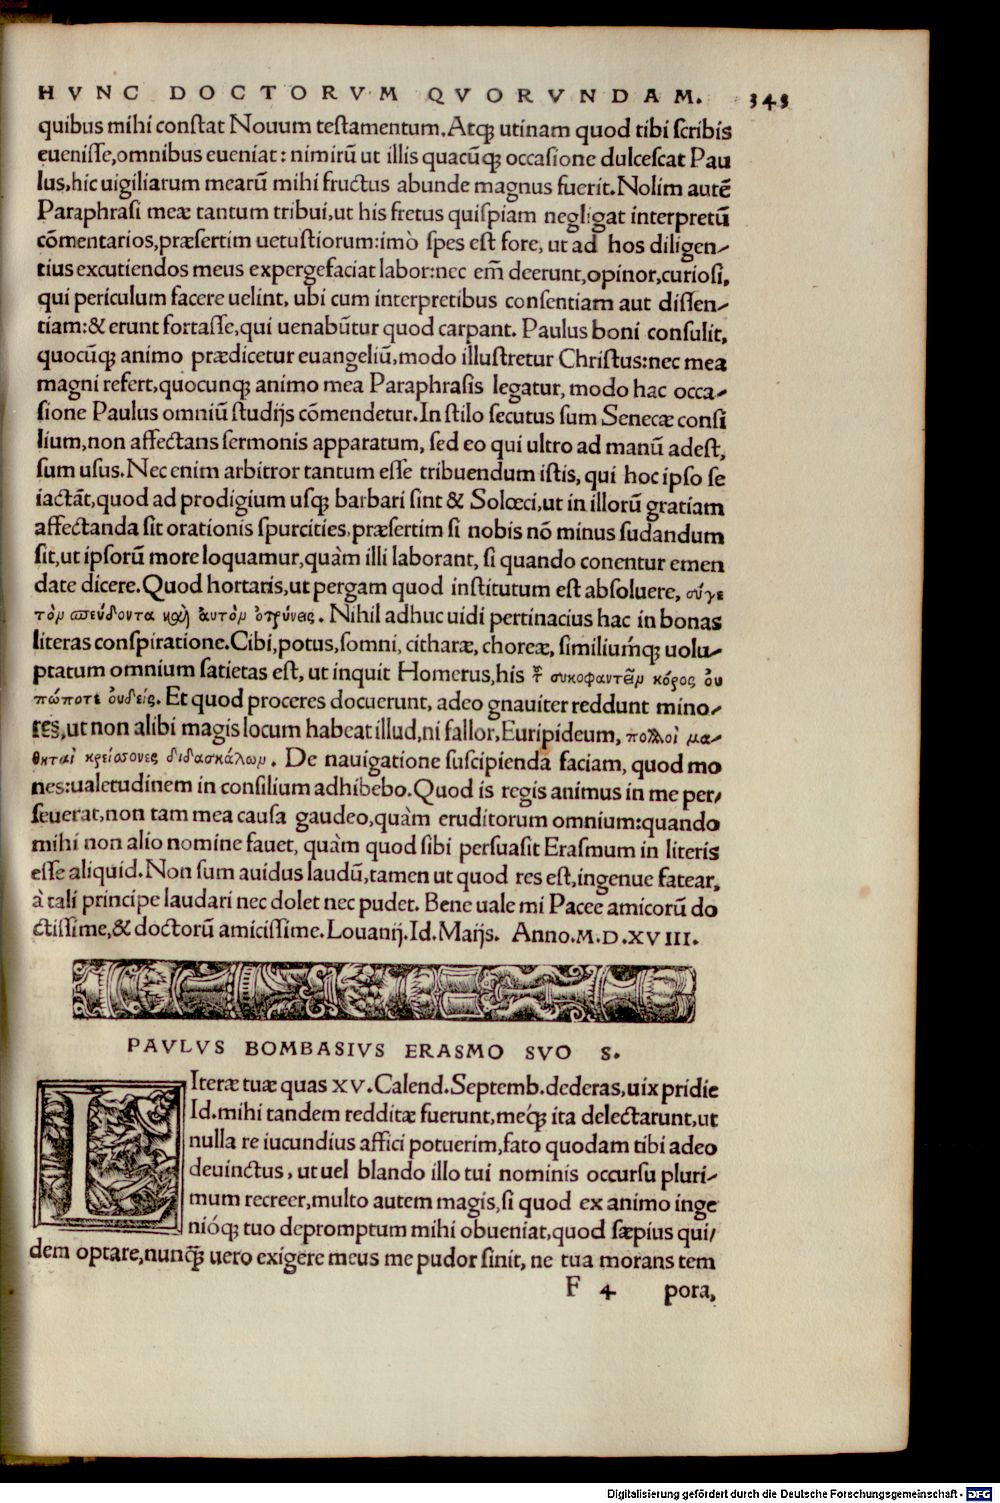 HVNC DOCTORVM QVORVNDAM. 343
quibus mihi conſtat Nouum teſtamentum. Atq; utinam quod tibi ſcribis
eueniſſe, omnibus eueniat: nimirũ ut illis quacũq; occaſione dulceſcat Pau
lus, hic uigiliarum mearũ mihi fructus abunde magnus fuerit. Nolim autẽ
Paraphraſi meæ tantum tribui, ut his fretus quiſpiam negligat interpretũ
cõmentarios, præſertim uetuſtiorum: imò ſpes eſt fore, ut ad hos diligen-
tius excutiendos meus expergefaciat labor: nec em̃ deerunt, opinor, curioſi,
qui periculum facere uelint, ubi cum interpretibus conſentiam aut diſſen-
tiam: & erunt fortaſſe, qui uenabũtur quod carpant. Paulus boni conſulit,
quocũq; animo prædicetur euangeliũ, modo illuſtretur Chriſtus: nec mea
magni refert, quocunq; animo mea Paraphraſis legatur, modo hac occa-
ſione Paulus omniũ ſtudijs cõmendetur. In ſtilo ſecutus ſum Senecæ conſi
lium, non affectans ſermonis apparatum, ſed eo qui ultro ad manũ adeſt,
ſum uſus. Nec enim arbitror tantum eſſe tribuendum iſtis, qui hoc ipſo ſe
iactãt, quod ad prodigium uſq; barbari ſint & Solœci, ut in illorũ gratiam
affectanda ſit orationis ſpurcities, præſertim ſi nobis nõ minus ſudandum
ſit, ut ipſorũ more loquamur, quàm illi laborant, ſi quando conentur emen
date dicere. Quod hortaris, ut pergam quod inſtitutum eſt abſoluere, σύγε
τὸν σπεύδοντα καὶ ἀυτὸν ὀτρύνεις. Nihil adhuc uidi pertinacius hac in bonas
literas conſpiratione. Cibi, potus, ſomni, citharæ, choreæ, ſimiliumq́; uolu-
ptatum omnium ſatietas eſt, ut inquit Homerus, his τ͂ συκοφαντῶν κόρος ὀυ
πώποτε ὀυδείς. Et quod proceres docuerunt, adeo gnauiter reddunt mino-
res, ut non alibi magis locum habeat illud, ni fallor, Euripideum, πολλοὶ μα-
θηταὶ κρείσσονες διδασκάλων. De nauigatione ſuſcipienda faciam, quod mo
nes: ualetudinem in conſilium adhibebo. Quod is regis animus in me per-
ſeuerat, non tam mea cauſa gaudeo, quàm eruditorum omnium: quando
mihi non alio nomine fauet, quàm quod ſibi perſuaſit Eraſmum in literis
eſſe aliquid. Non ſum auidus laudũ, tamen ut quod res eſt, ingenue fatear,
à tali principe laudari nec dolet nec pudet. Bene uale mi Pacee amicorũ do
ctiſſime, & doctorũ amiciſſime. Louanij. Id. Maijs. Anno. M. D. XVIII.
PAVLVS BOMBASIVS ERASMO SVO S.
LIteræ tuæ quas XV. Calend. Septemb. dederas, uix pridie
Id. mihi tandem redditæ fuerunt, meq́; ita delectarunt, ut
nulla re iucundius affici potuerim, fato quodam tibi adeo
deuinctus, ut uel blando illo tui nominis occurſu pluri-
mum recreer, multo autem magis, ſi quod ex animo inge
nióq; tuo depromptum mihi obueniat, quod ſæpius qui-
dem optare, nunq̃; uero exigere meus me pudor ſinit, ne tua morans tem
F 4 pora,
Digitalisierung gefördert durch die Deutsche Forschungsgemeinschaft - DFG